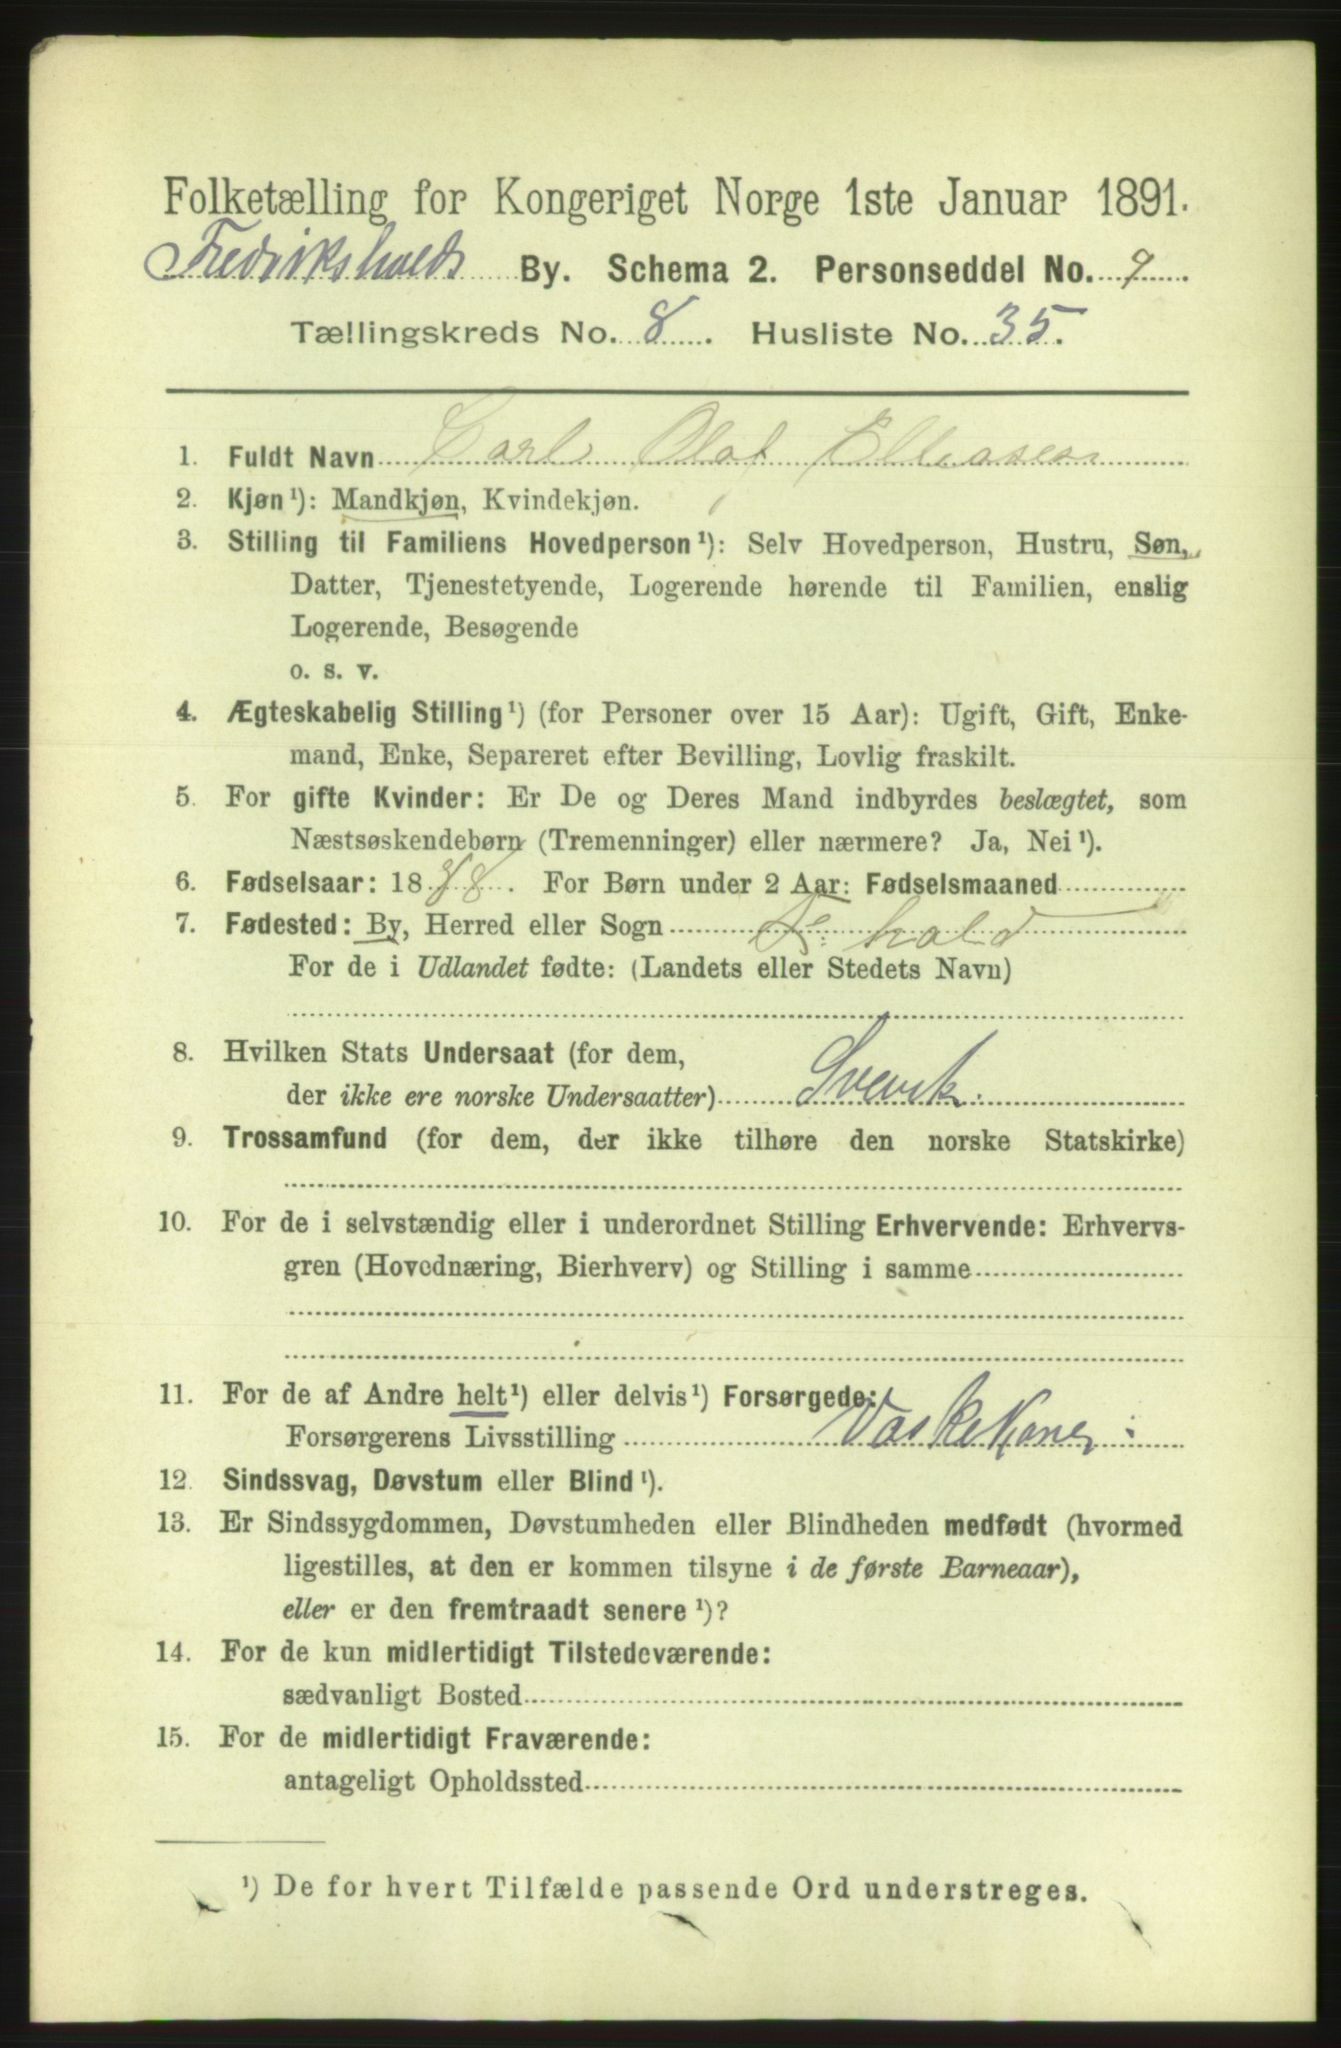 Folketælling for Kongeriget Norge 1ste Januar 1891.
Fredrikshalds By. Schema 2. Personseddel No. 9.
Tællingskreds No. 8. Husliste No. 35.
1. Fuldt Navn Carl Olaf Eliasen
2. Kjøn ¹): Mandkjøn, Kvindekjøn.
3. Stilling til Familiens Hovedperson ¹): Selv Hovedperson, Hustru, Søn,
Datter, Tjenestetyende, Logerende hørende til Familien, enslig
Logerende, Besøgende
o. s. v.
4. Ægteskabelig Stilling ¹) (for Personer over 15 Aar): Ugift, Gift, Enke-
mand, Enke, Separeret efter Bevilling, Lovlig fraskilt.
5. For gifte Kvinder: Er De og Deres Mand indbyrdes beslægtet, som
Næstsøskendebørn (Tremenninger) eller nærmere? Ja, Nei ¹).
6. Fødselsaar: 1878. For Børn under 2 Aar: Fødselsmaaned
7. Fødested: By, Herred eller Sogn Fr:hald
For de i Udlandet fødte: (Landets eller Stedets Navn)
8. Hvilken Stats Undersaat (for dem,
der ikke ere norske Undersaatter) Svensk.
9. Trossamfund (for dem, der ikke tilhøre den norske Statskirke)
10. For de i selvstændig eller i underordnet Stilling Erhvervende: Erhvervs-
gren (Hovednæring, Bierhverv) og Stilling i samme
11. For de af Andre helt ¹) eller delvis ¹) Forsørgede:
Forsørgerens Livsstilling Vaskekone
12. Sindssvag, Døvstum eller Blind ¹).
13. Er Sindssygdommen, Døvstumheden eller Blindheden medfødt (hvormed
ligestilles, at den er kommen tilsyne i de første Barneaar),
eller er den fremtraadt senere ¹)?
14. For de kun midlertidigt Tilstedeværende:
sædvanligt Bosted
15. For de midlertidigt Fraværende:
antageligt Opholdssted
¹) De for hvert Tilfælde passende Ord understreges.